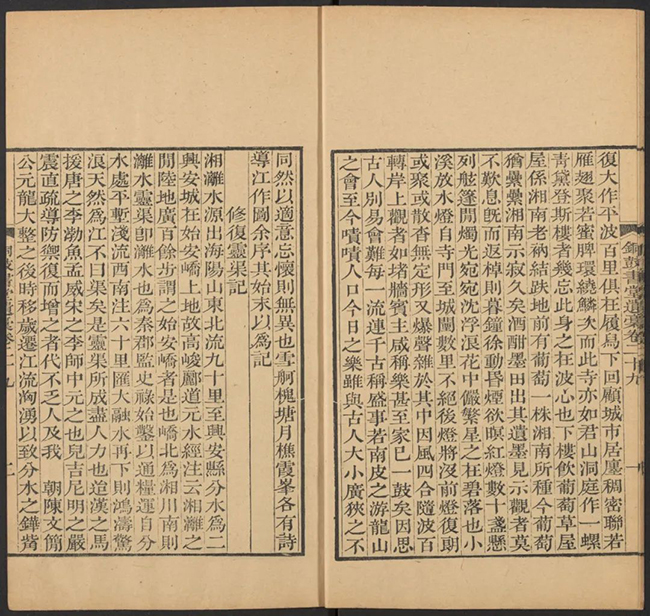 復大作平波百里俱在履舄下回顧城市居廛稠密聯若
雁翅聚若蜜脾環繞鱗次而此寺亦如君山洞庭作一螺
青黛登斯樓者幾忘此身之在波心也下樓飲葡萄草屋
屋係湘南老衲結跌地前有葡萄一株湘南所種今葡萄
猶纍纍湘南示寂久矣酒酣墨田出其遺墨見示觀者莫
不歎息旣而返棹則暮鐘徐動昏煙欲暝紅燈數十盞懸
列般篷開燭光宛宛沈浮浪花中儼繁星之在碧落也小
溪放水燈自寺門至城闉數里不絕後燈將沒前燈復朗
或聚或散杳無定形又爆聲雜於其中因風四合隨波百
轉岸上觀者如堵牆賓主咸稱樂甚至家巳一鼓矣因思
古人別易會難每一流連千古稱盛事若南皮之游龍山
之會至今嘖嘖人口今日之樂雖與古人大小廣狹之不
銅鼓書堂遺稾卷二十九
同然以適意忘懷則無異也雪舸槐塘月樵霞峯各有詩
導江作圖余序其始末以爲記
修復靈渠記
湘灕水源出海陽山東北流九十里至興安縣分水爲二
興安城在始安嶠上地故高峻酈道元水經注云湘灕之
閒陸地廣百餘步謂之始安嶠者是也嶠北爲湘川南則
灕水靈渠卽灕水也爲秦郡監史祿始鑿以通糧運自分
水處平塹淺流西南注六十里匯大融水再下則鴻濤驚
浪天然爲江不曰渠矣是靈渠所成盡人力也逌漢之馬
援唐之李渤魚孟威宋之李師中元之也兒吉尼明之嚴
震直疏導防禦復而增之者代不乏人及我 朝陳文簡
公元龍大整之後時移歲遷江流洶湧以致分水之鏵觜
銅鼓書堂遺稾卷二十九
二